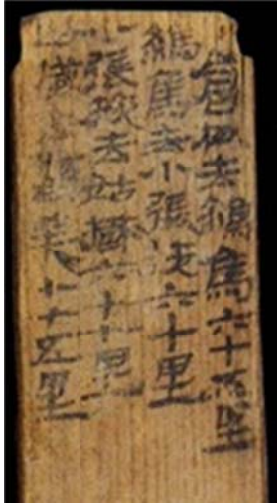 倉松去鸞鳥六十五里
鸞鳥去小張掖六十里
小張掖去姑臧六十七里
姑臧去顯美七十五里